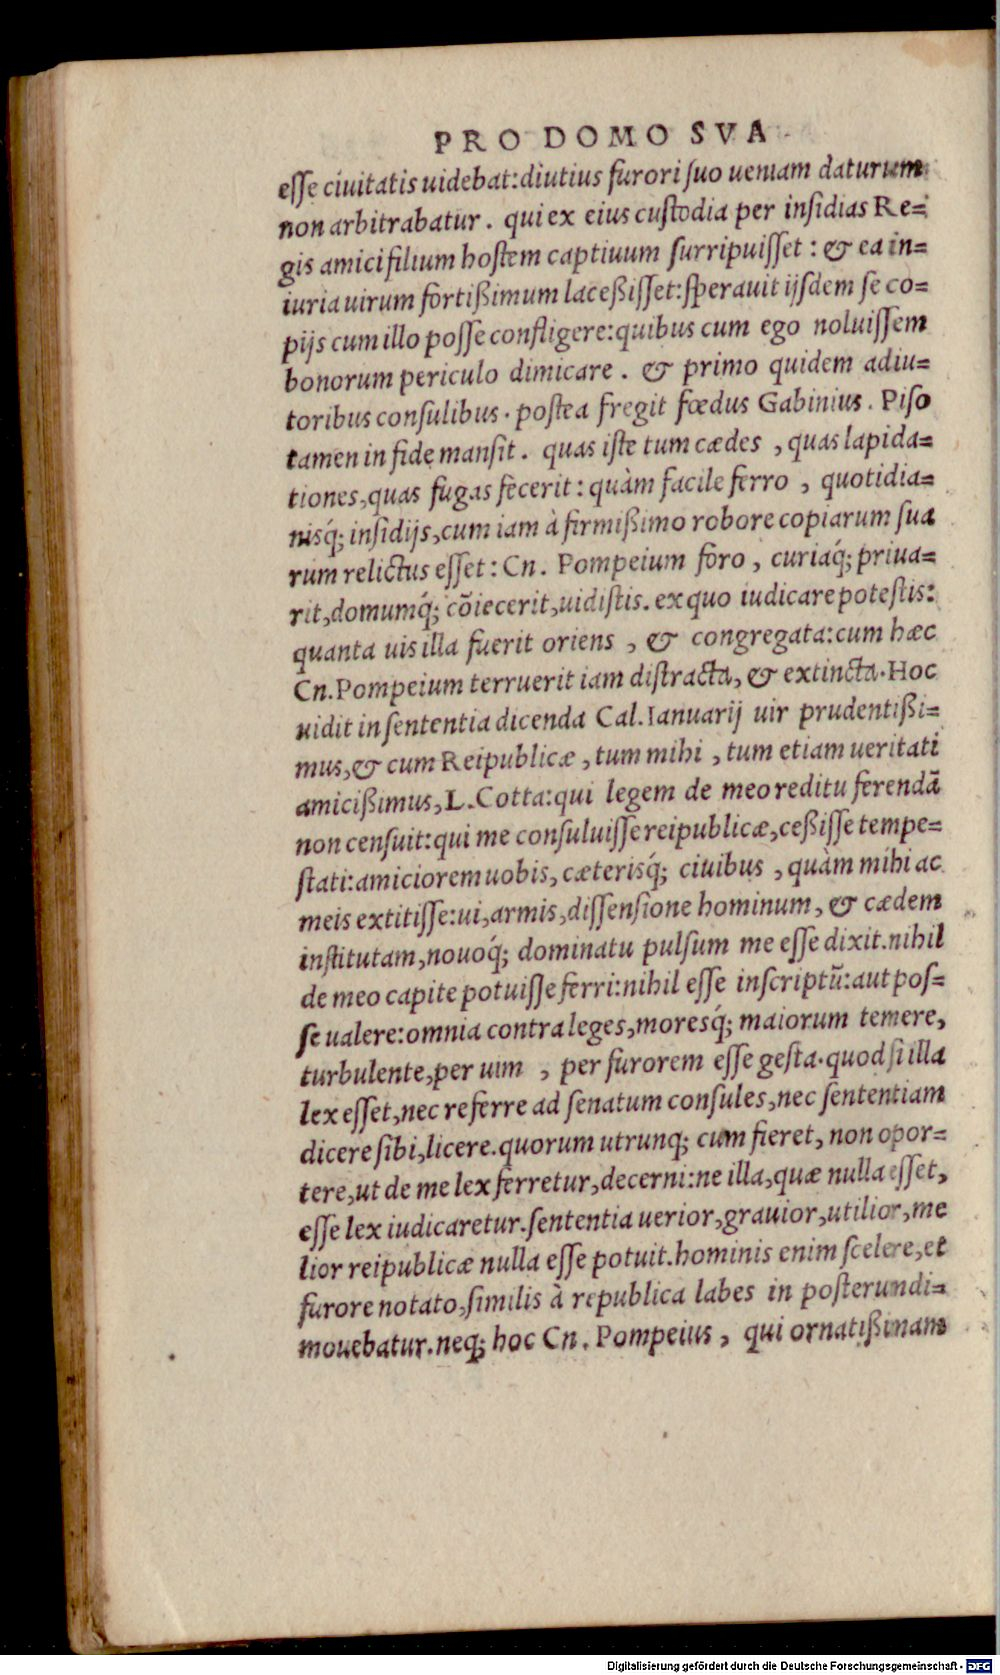 PRO DOMO SVA
eſſe ciuitatis uidebat:diutius furori ſuo ueniam daturum
non arbitrabatur. qui ex eius cuſtodia per inſidias Re=
gis amici filium hoſtem captiuum ſurripuiſſet: & ea in=
iuria uirum fortißimum laceßiſſet:ſperauit ijſdem ſe co=
pijs cum illo poſſe confligere:quibus cum ego noluiſſem
bonorum periculo dimicare. & primo quidem adiu=
toribus conſulibus. poſtea fregit fœdus Gabinius. Piſo
tamen in fide manſit. quas iſte tum cædes, quas lapida=
tiones,quas fugas fecerit: quàm facile ferro, quotidia=
nisq́; inſidijs,cum iam à firmißimo robore copiarum ſua
rum relictus eſſet: Cn. Pompeium foro, curiaq́; priua=
rit,domumq́; cōiecerit,uidiſtis. ex quo iudicare poteſtis:
quanta uis illa fuerit oriens, & congregata:cum hæc
Cn.Pompeium terruerit iam diſtracta, & extincta.Hoc
uidit in ſententia dicenda Cal.Ianuarij uir prudentißi=
mus,& cum Reipublicæ, tum mihi, tum etiam ueritati
amicißimus,L.Cotta:qui legem de meo reditu ferendā
non cenſuit:qui me conſuluiſſe reipublicæ,ceßiſſe tempe=
ſtati:amiciorem uobis, cæterisq́; ciuibus, quàm mihi ac
meis extitiſſe:ui,armis,diſſenſione hominum, & cædem
inſtitutam,nouoq́; dominatu pulſum me eſſe dixit.nihil
de meo capite potuiſſe ferri:nihil eſſe inſcriptū:aut poſ=
ſe ualere:omnia contra leges,moresq́; maiorum temere,
turbulente,per uim, per furorem eſſe geſta.quod ſi illa
lex eſſet,nec referre ad ſenatum conſules,nec ſententiam
dicere ſibi,licere.quorum utrunq; cum fieret, non opor=
tere,ut de me lex ferretur,decerni:ne illa,quæ nulla eſſet,
eſſe lex iudicaretur.ſententia uerior,grauior,utilior,me
lior reipublicæ nulla eſſe potuit.hominis enim ſcelere,et
furore notato,ſimilis à republica labes in poſterum di=
mouebatur.neq; hoc Cn.Pompeius, qui ornatißimam
Digitalisierung gefördert durch die Deutsche Forschungsgemeinschaft - DFG